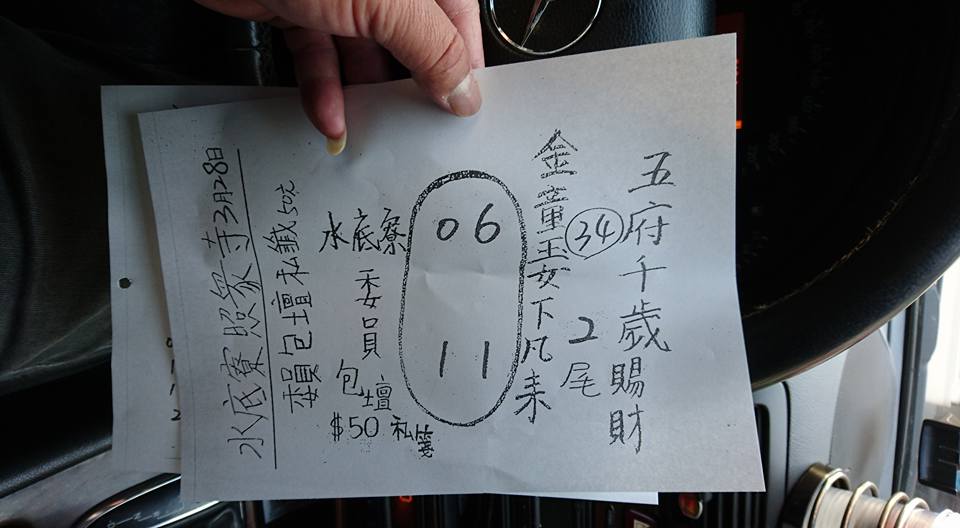 五府千歲賜財
34 2尾
金童玉女下凡來
06
11
水底寮
委員
包壇
$50 私箋
委員包壇私籤50元
水底寮照眾寺3月28日